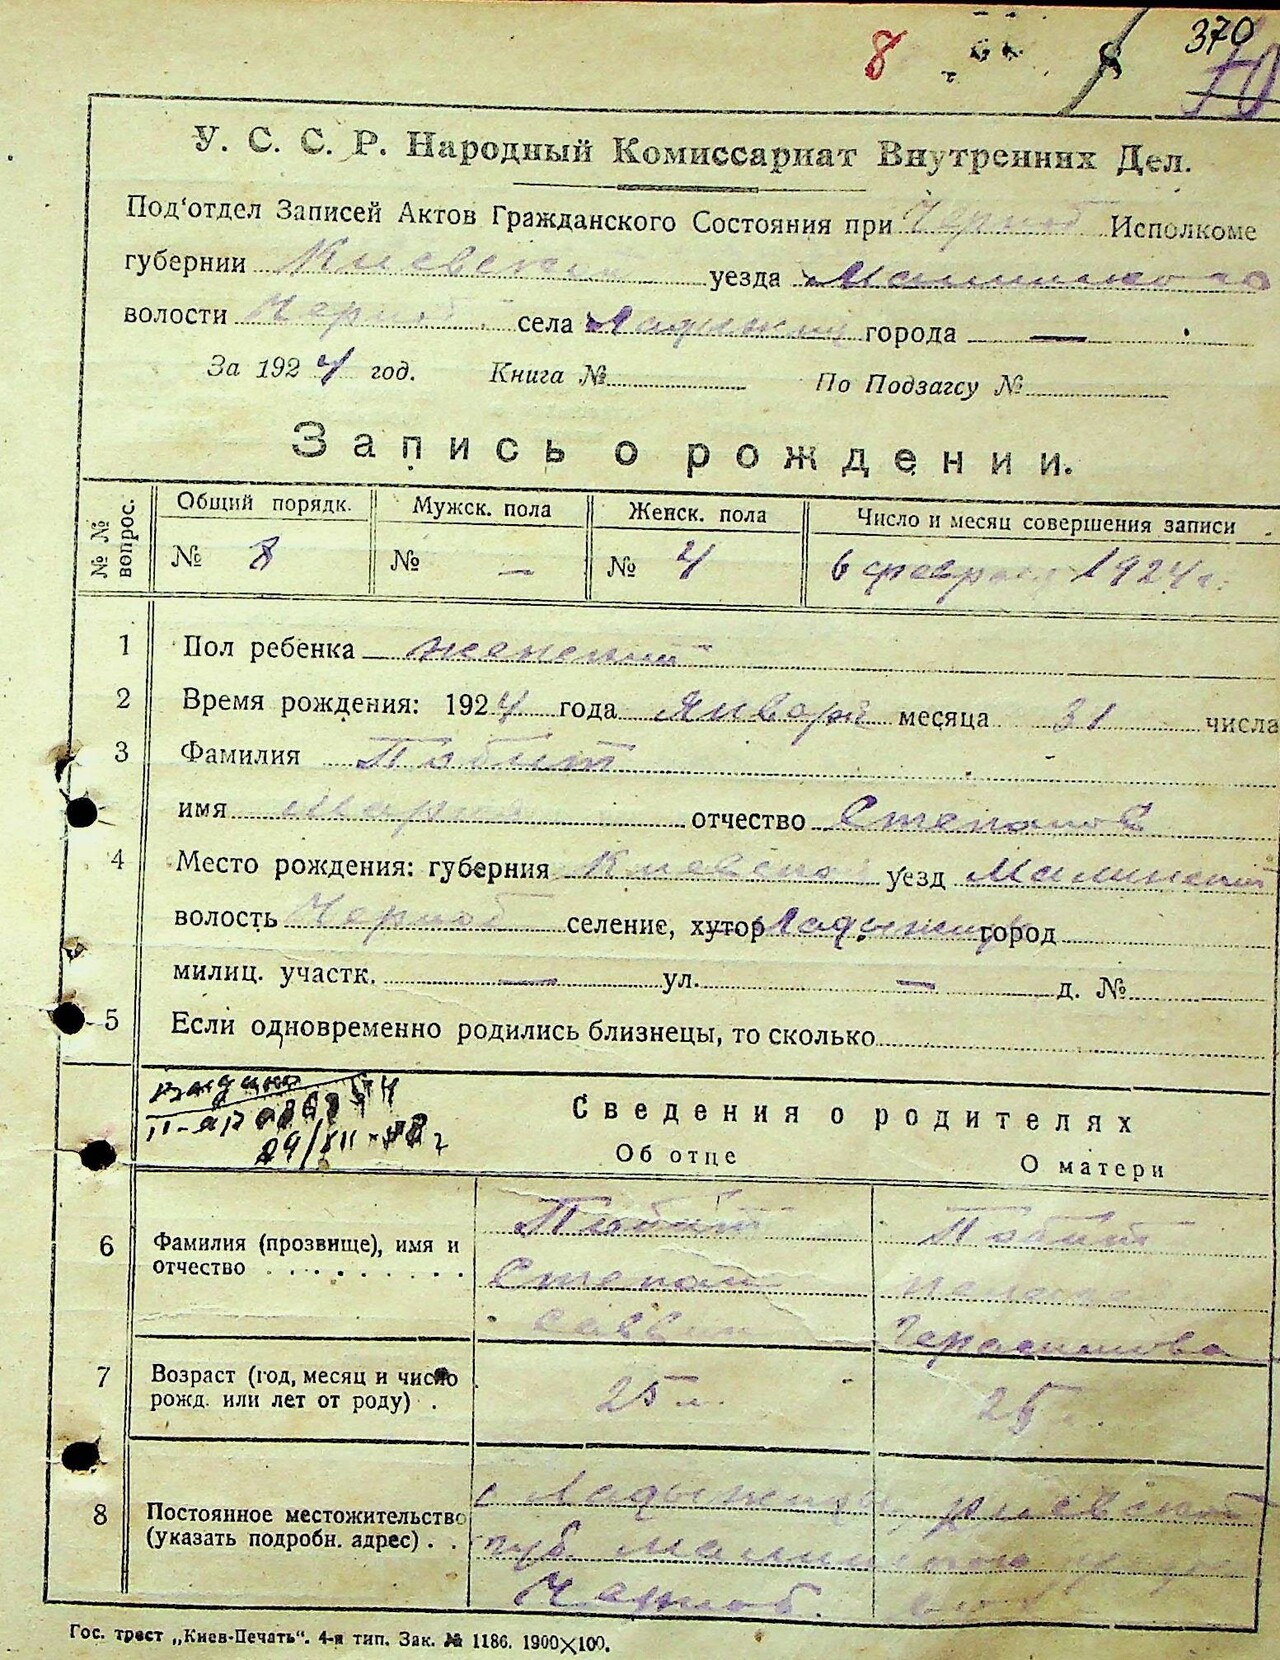 8 370
70
У. С. С. Р. Народный Комиссариат Внутренних Дел.
Под'отдел Записей Актов Гражданского Состояния при Черноб Исполкоме
губернии Киевской уезда Малинского
волости Черноб села Ладыжичи города —
За 1924 год. Книга № По Подзагсу №
Запись о рождении.
№ № вопрос. Общий порядк. Мужск. пола Женск. пола Число и месяц совершения записи
№ 8 № — № 4 6 февраля 1924 г.
1 Пол ребенка женский
2 Время рождения: 1924 года Января месяца 31 числа
3 Фамилия Пабит
имя Мария отчество Степанов
4 Место рождения: губерния Киевской уезд Малинский
волость Черноб селение, хутор Ладыжичи город
милиц. участк. — ул. — д. №
5 Если одновременно родились близнецы, то сколько
Сведения о родителях
Об отце О матери
6 Фамилия (прозвище), имя и
отчество
Пабит Пабит
Степан
Саввин Герасимова
7 Возраст (год, месяц и число
рожд. или лет от роду) .
25 л. 25 л.
8 Постоянное местожительство
(указать подробн. адрес) . .
с Ладыжичи, Киевской
губ. Малинского уезда
Черноб.
Гос. трест „Киев-Печать". 4-я тип. Зак. № 1186. 1900×100.